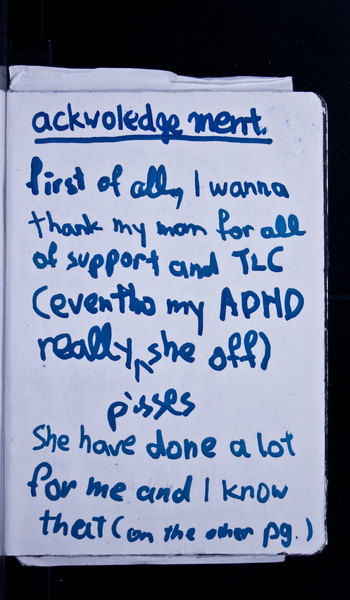 ackwoledgement.
first of all, I wanna
thank my mom for all
of support and TLC
(eventho my ADHD
really, she off)
pisses
She have done a lot
for me and I know
that (on the other pg.)